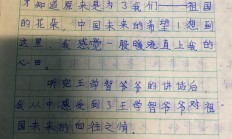 才知道原来是为了我们——祖国
的花朵，中国未来的希望！想到
这里，我感觉一股暖流直上我的
心田。
听完王学智爷爷的讲话后，
我从中感受到了王学智爷爷对祖
国未来的向往之情。